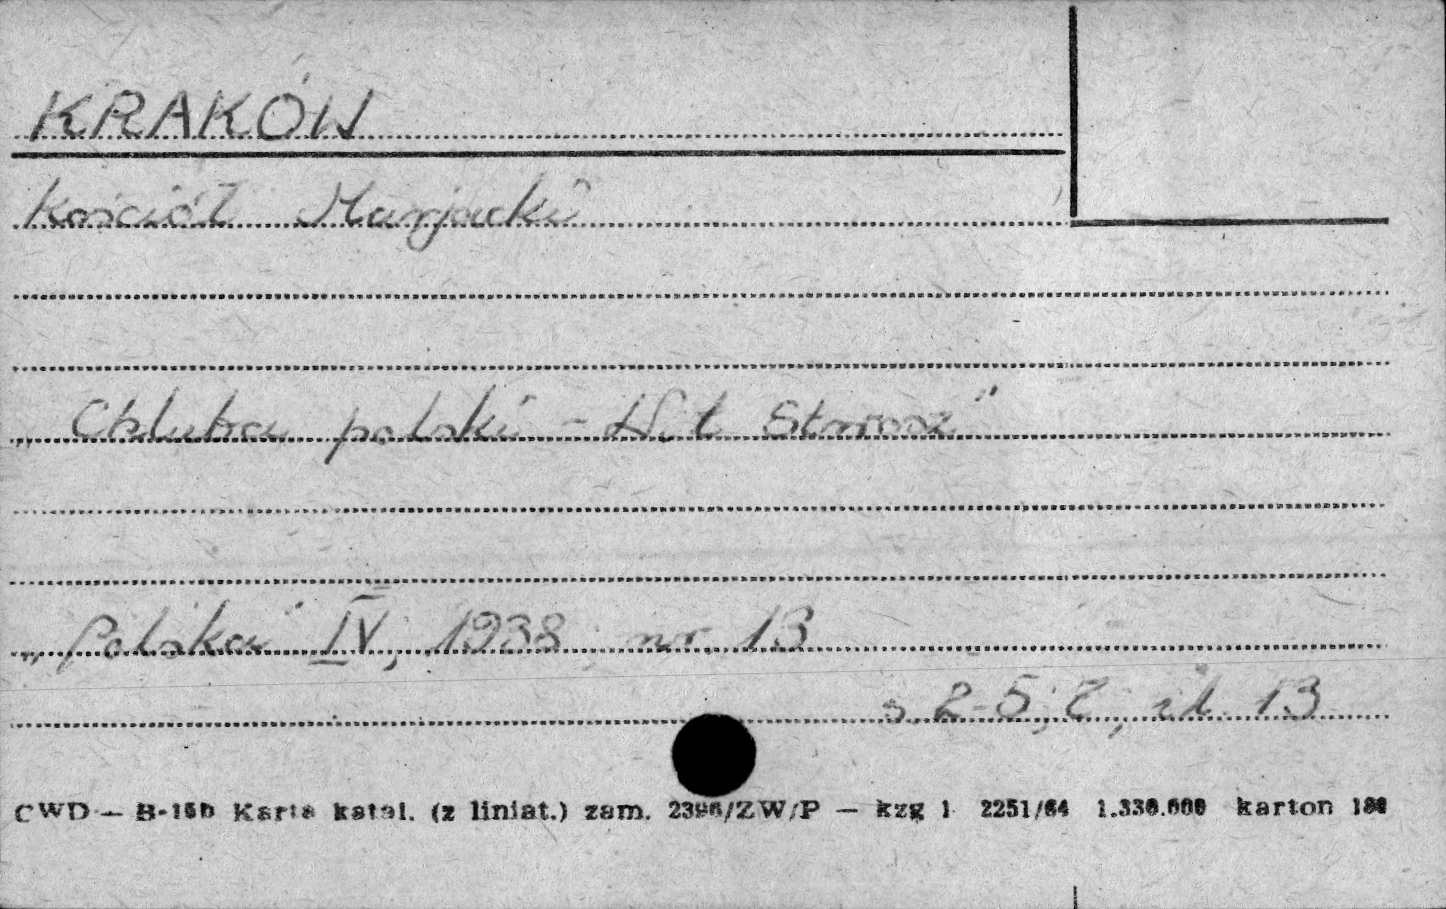 KRAKÓW
Kościół Marjacki
„Chluba polski - Wit Stwosz"
„Polska" IV, 1938, nr. 13
s. 2-5; 7, il. 13
CWD — B-15b Karta katal. (z liniat.) zam. 2396/ZW/P — kzg 1 2251/64 1.330.000 karton